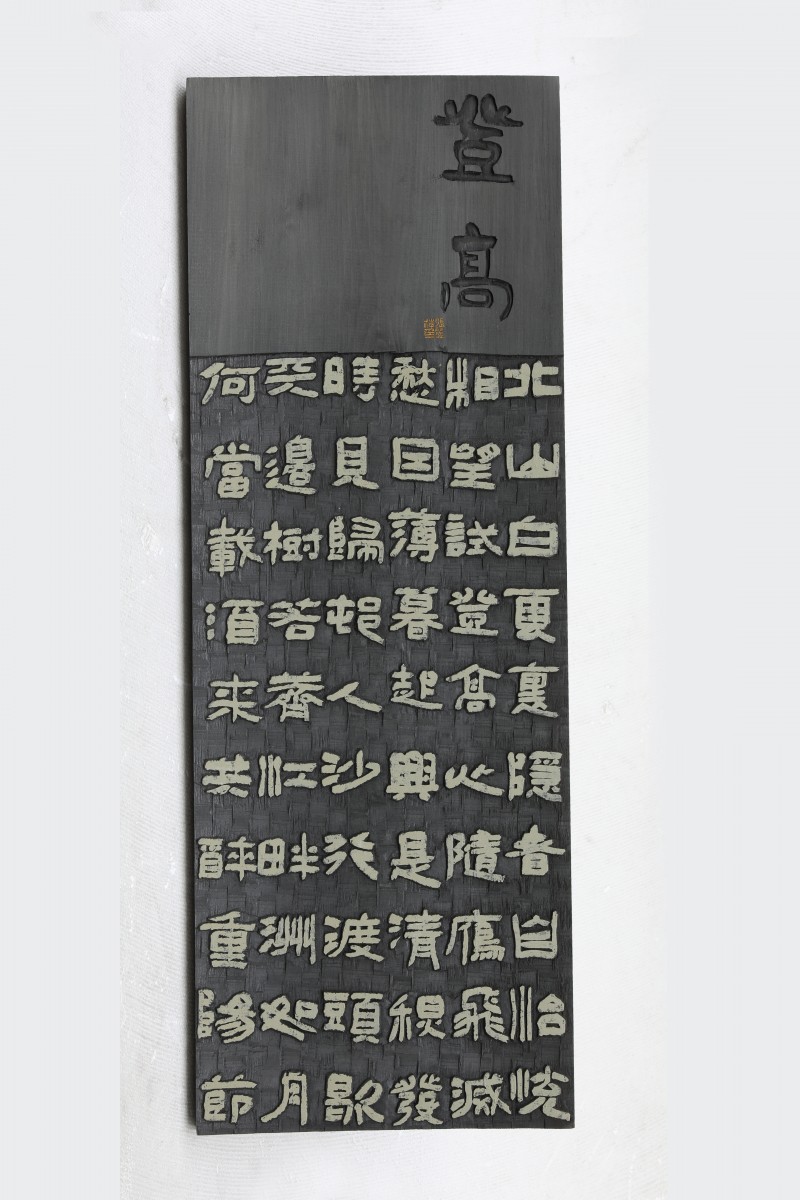 登高
北山白雲裏隱者自怡悅
相望試登高心隨鴈飛滅
愁因薄暮起興是清秋發
時見歸邨人沙行渡頭歇
天邊樹若薺江畔洲如月
何當載酒来共醉重陽節